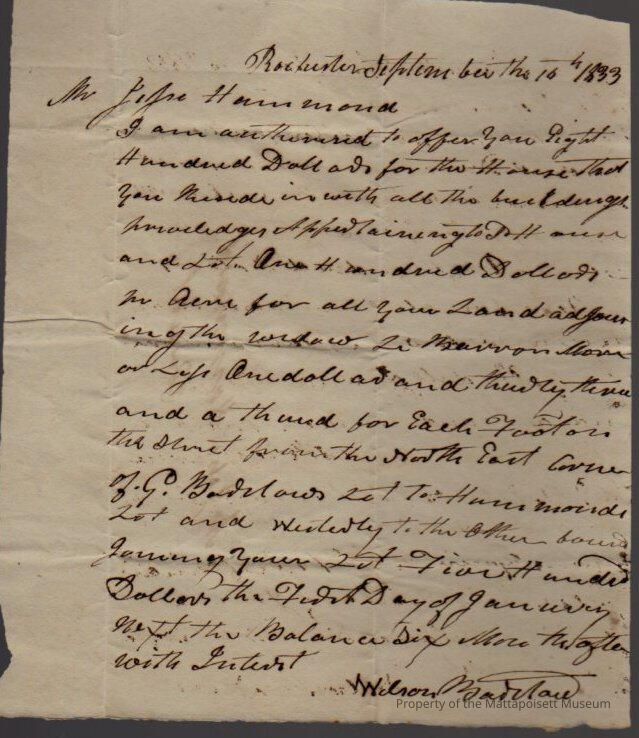 Rochester September the 16th 1833
Mr Jesse Hammond
I am authorised to offer you Eight
Hundred Dollars for the House that
you Reside in with all the buildings
priveledges Appertaineing to sd House
and Lot. One Hundred Dollars
pr Acre for all your Land adjoin
ing the widow Le Barron More
or Less One dollar and thirty three
and a third for Each Foot on
the street from the North East Corner
of G. Barstows Lot to Hammonds
Lot and Westerly to the Other bound
Joining your Lot Five Hundred
Dollars the First Day of January
next the Balance Six More thafter
with Interest
Wilson Barstow
Property of the Mattapoisett Museum